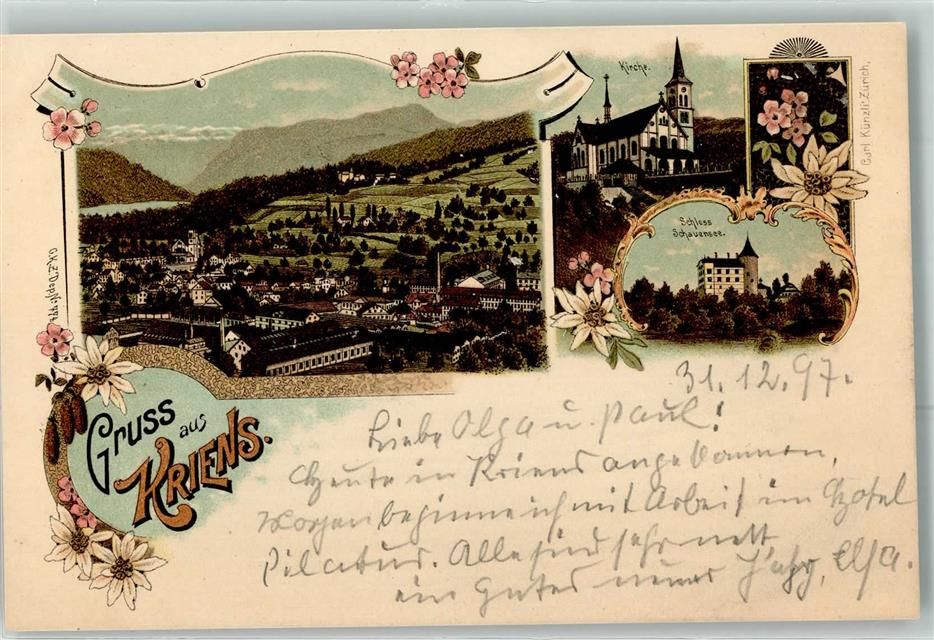 Kirche.
Carl Künzli, Zürich.
Schloss
Schauensee.
Gruss aus
KRIENS.
31.12.97.
Liebe Olga u. Paul!
Heute in Kriens angekommen,
Morgen beginne ich mit Arbeit im Hotel
Pilatus. Alle sind sehr nett
ein Gutes neues Jahr, Elsa.